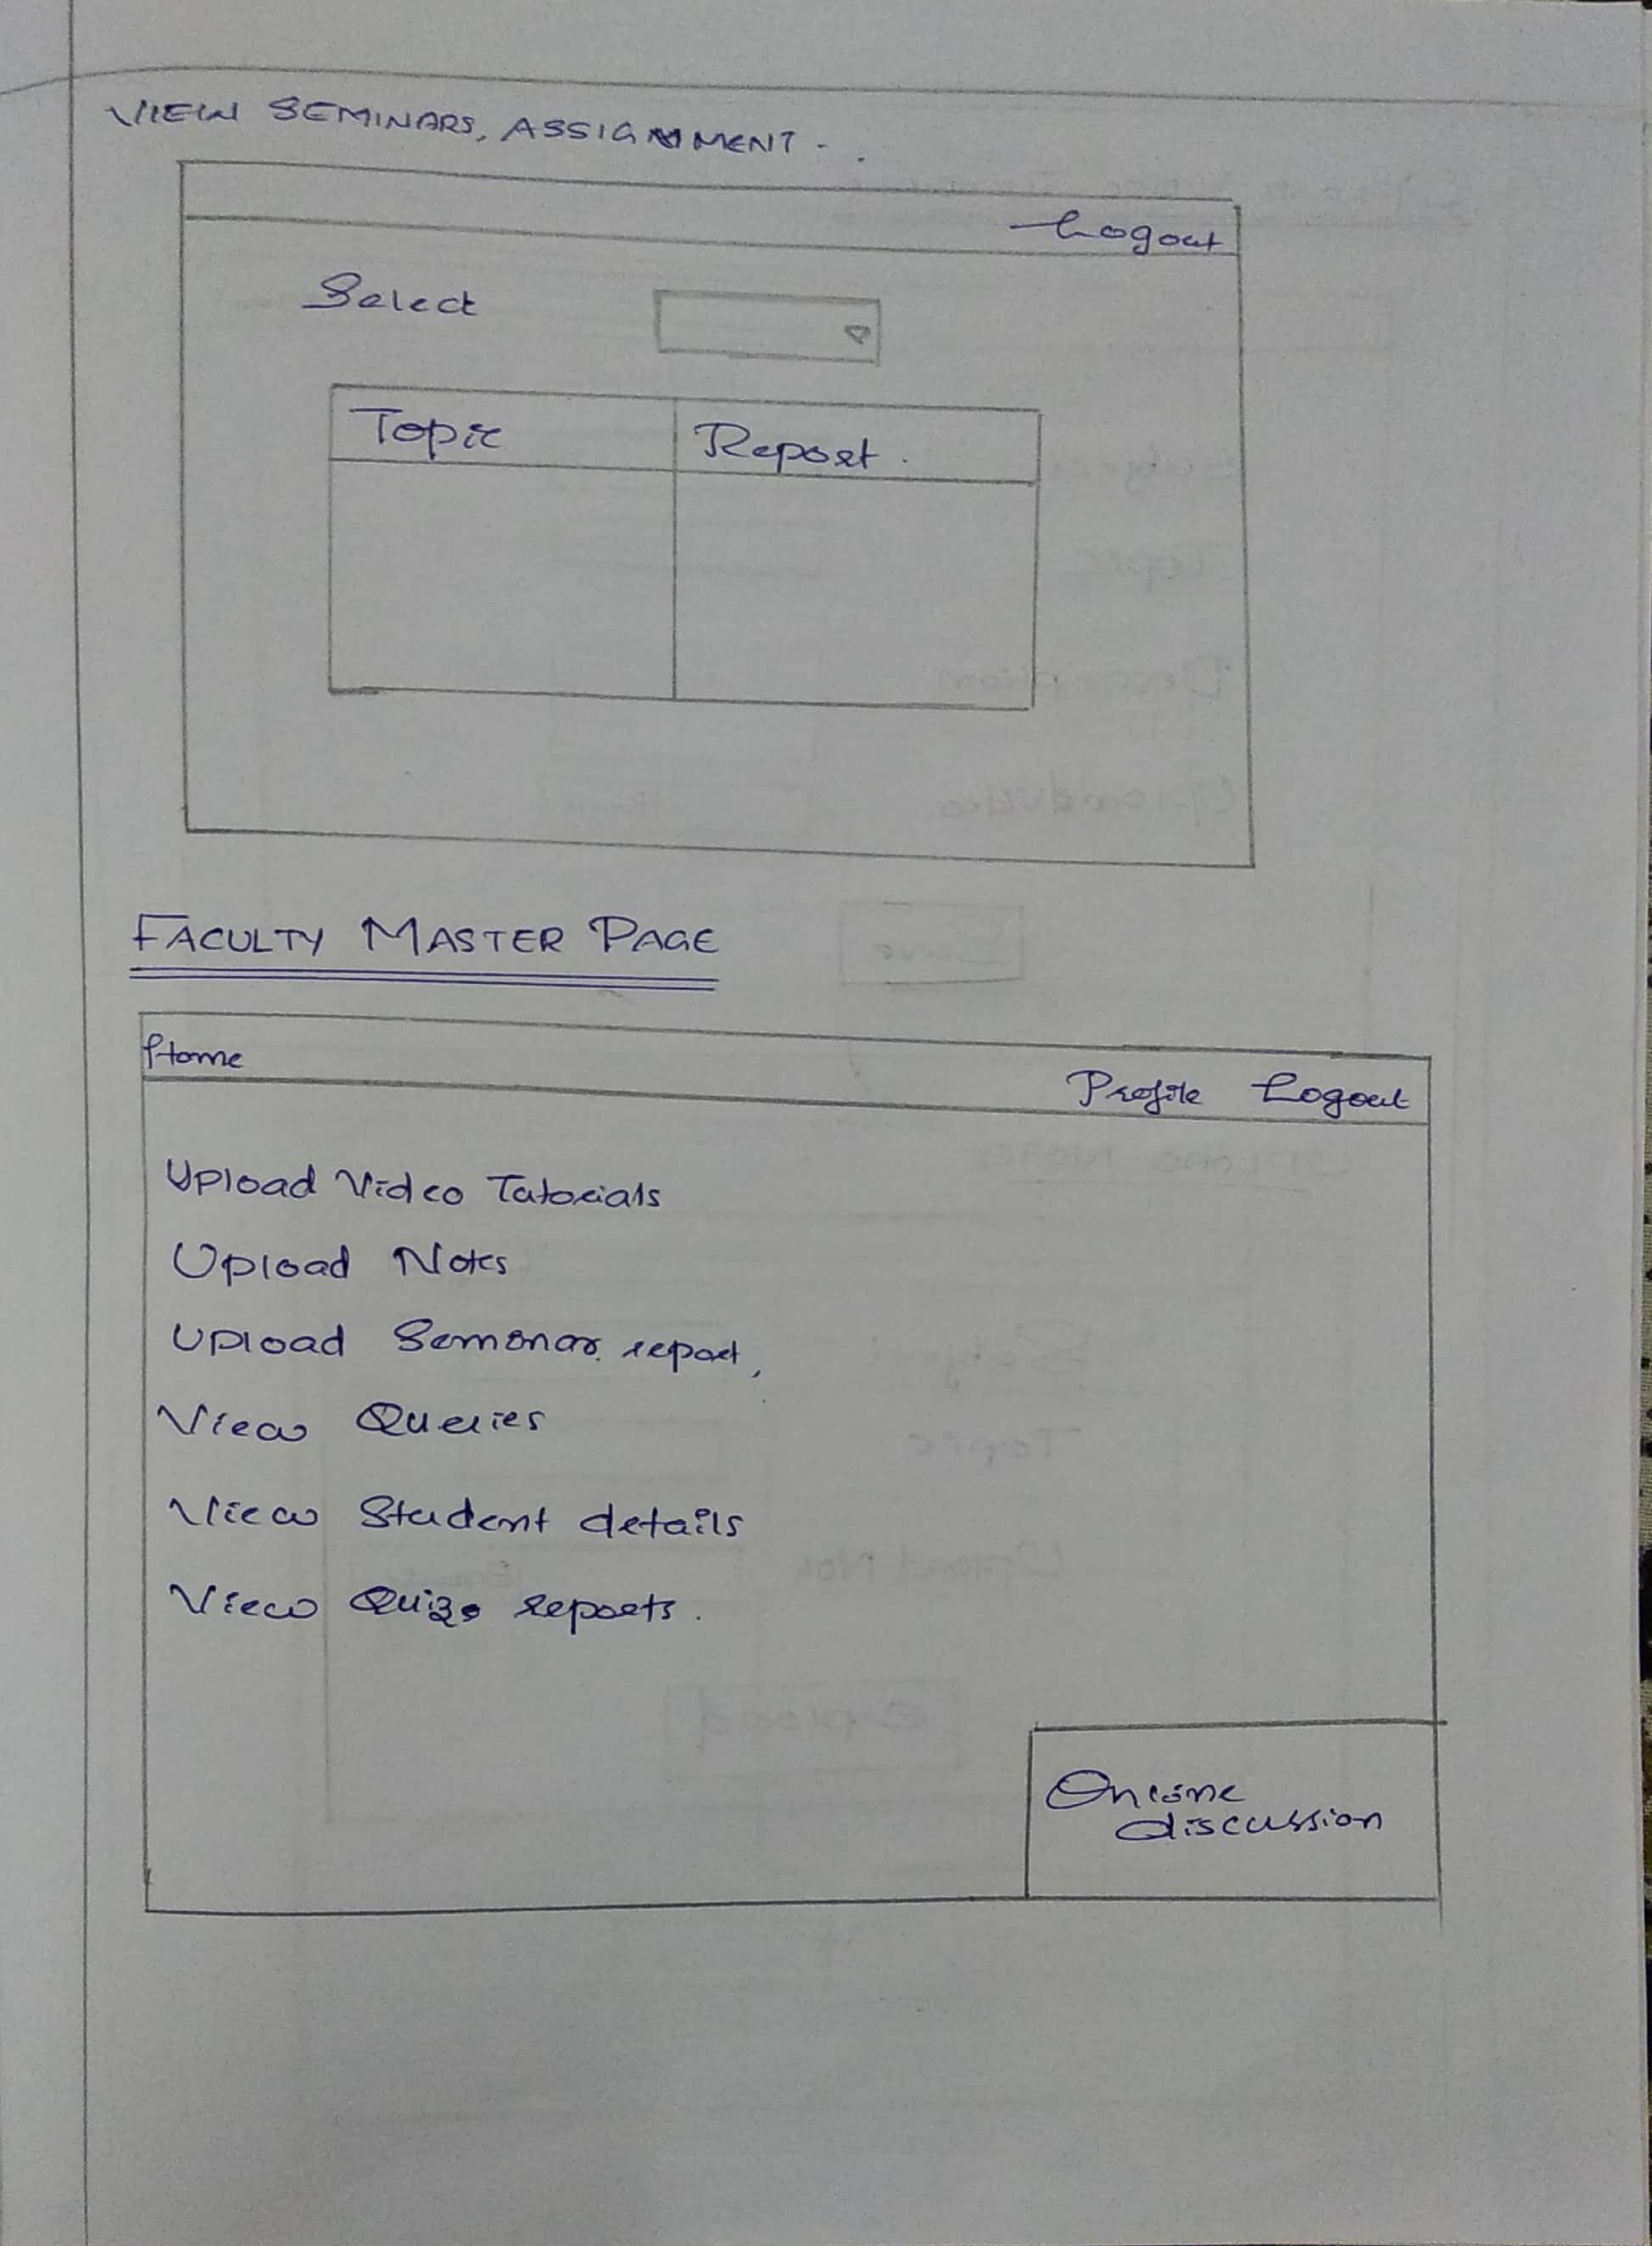 VIEW SEMINARS, ASSIGNMENT.
Logout
Select
Topic Report.
FACULTY MASTER PAGE
Home Profile Logout
Upload Video Tutorials
Upload Notes
Upload Seminar report,
View Queries
View Student details
View Quiz reports.
Online
discussion